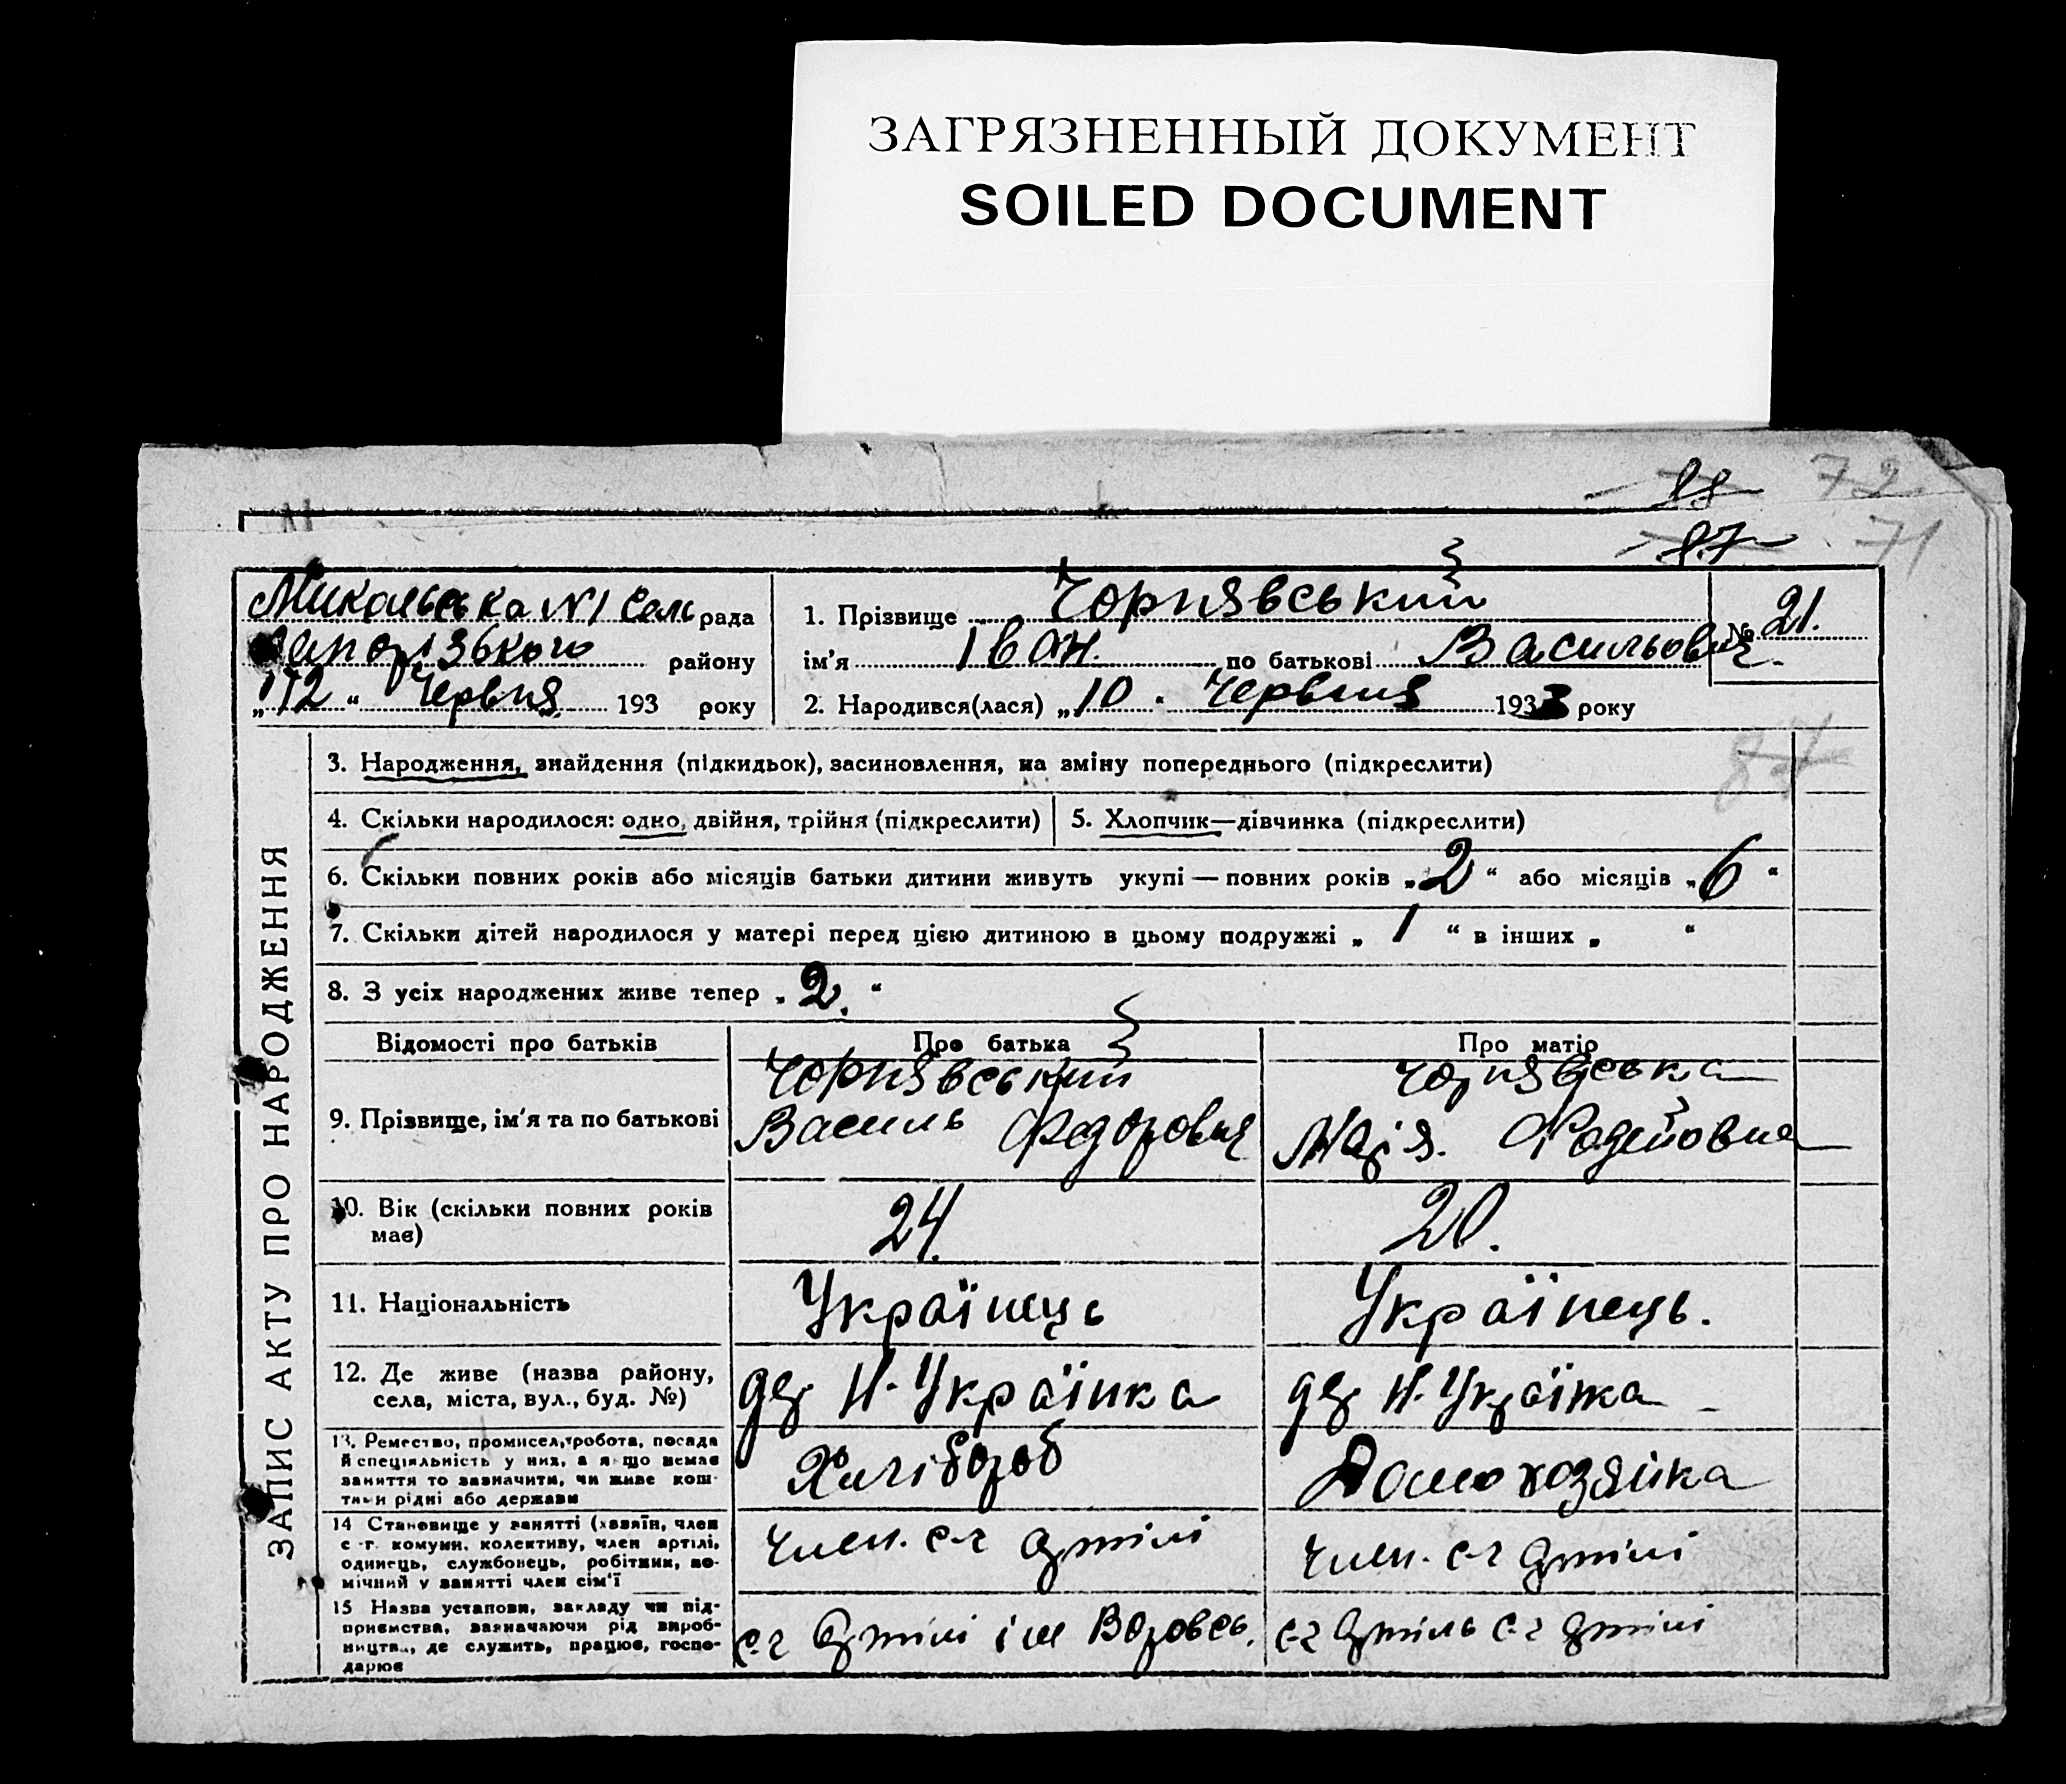 ЗАГРЯЗНЕННЫЙ ДОКУМЕНТ
SOILED DOCUMENT
88 72
87 71
Микольська №1 сель рада
Запорізького району
"12" Червня 193 року
1. Прізвище Чорнявський
ім'я Іван. по батькові Васильович
№ 21.
2. Народився(лася) "10" Червня 1933 року
ЗАПИС АКТУ ПРО НАРОДЖЕННЯ
3. Народження, знайдення (підкидьок), засиновлення, на зміну попереднього (підкреслити)
4. Скільки народилося: одно, двійня, трійня (підкреслити)
5. Хлопчик—дівчинка (підкреслити)
6. Скільки повних років або місяців батьки дитини живуть укупі — повних років „2“ або місяців „6“
7. Скільки дітей народилося у матері перед цією дитиною в цьому подружжі „1“ в інших „ “
8. З усіх народжених живе тепер „2.“
Відомості про батьків Про батька Про матір
9. Прізвище, ім'я та по батькові
Чорнявський
Василь Федорович
Чорнявська
Марія.
10. Вік (скільки повних років має) 24. 20.
11. Національність Українець Українець.
12. Де живе (назва району,
села, міста, вул., буд. №)
дер Н-Українка дер Н-Українка
13. Ремество, промисел, робота, посада
й спеціяльність у них, а якщо немає
заняття то зазначити, чи живе кош-
тами рідні або держави
Хлібороб Домохозяйка
14 Становище у занятті (хазяїн, член
с.-г. комуни, колективу, член артілі,
одинець, службовець, робітник, по-
мічний у занятті член сім'ї
Член. с-г артілі Член. с-г артілі
15 Назва установи, закладу чи під-
приємства, зазначаючи рід вироб-
ництва, де служить, працює, госпо-
дарює
с-г артілі ім с-г артіль с-г артілі